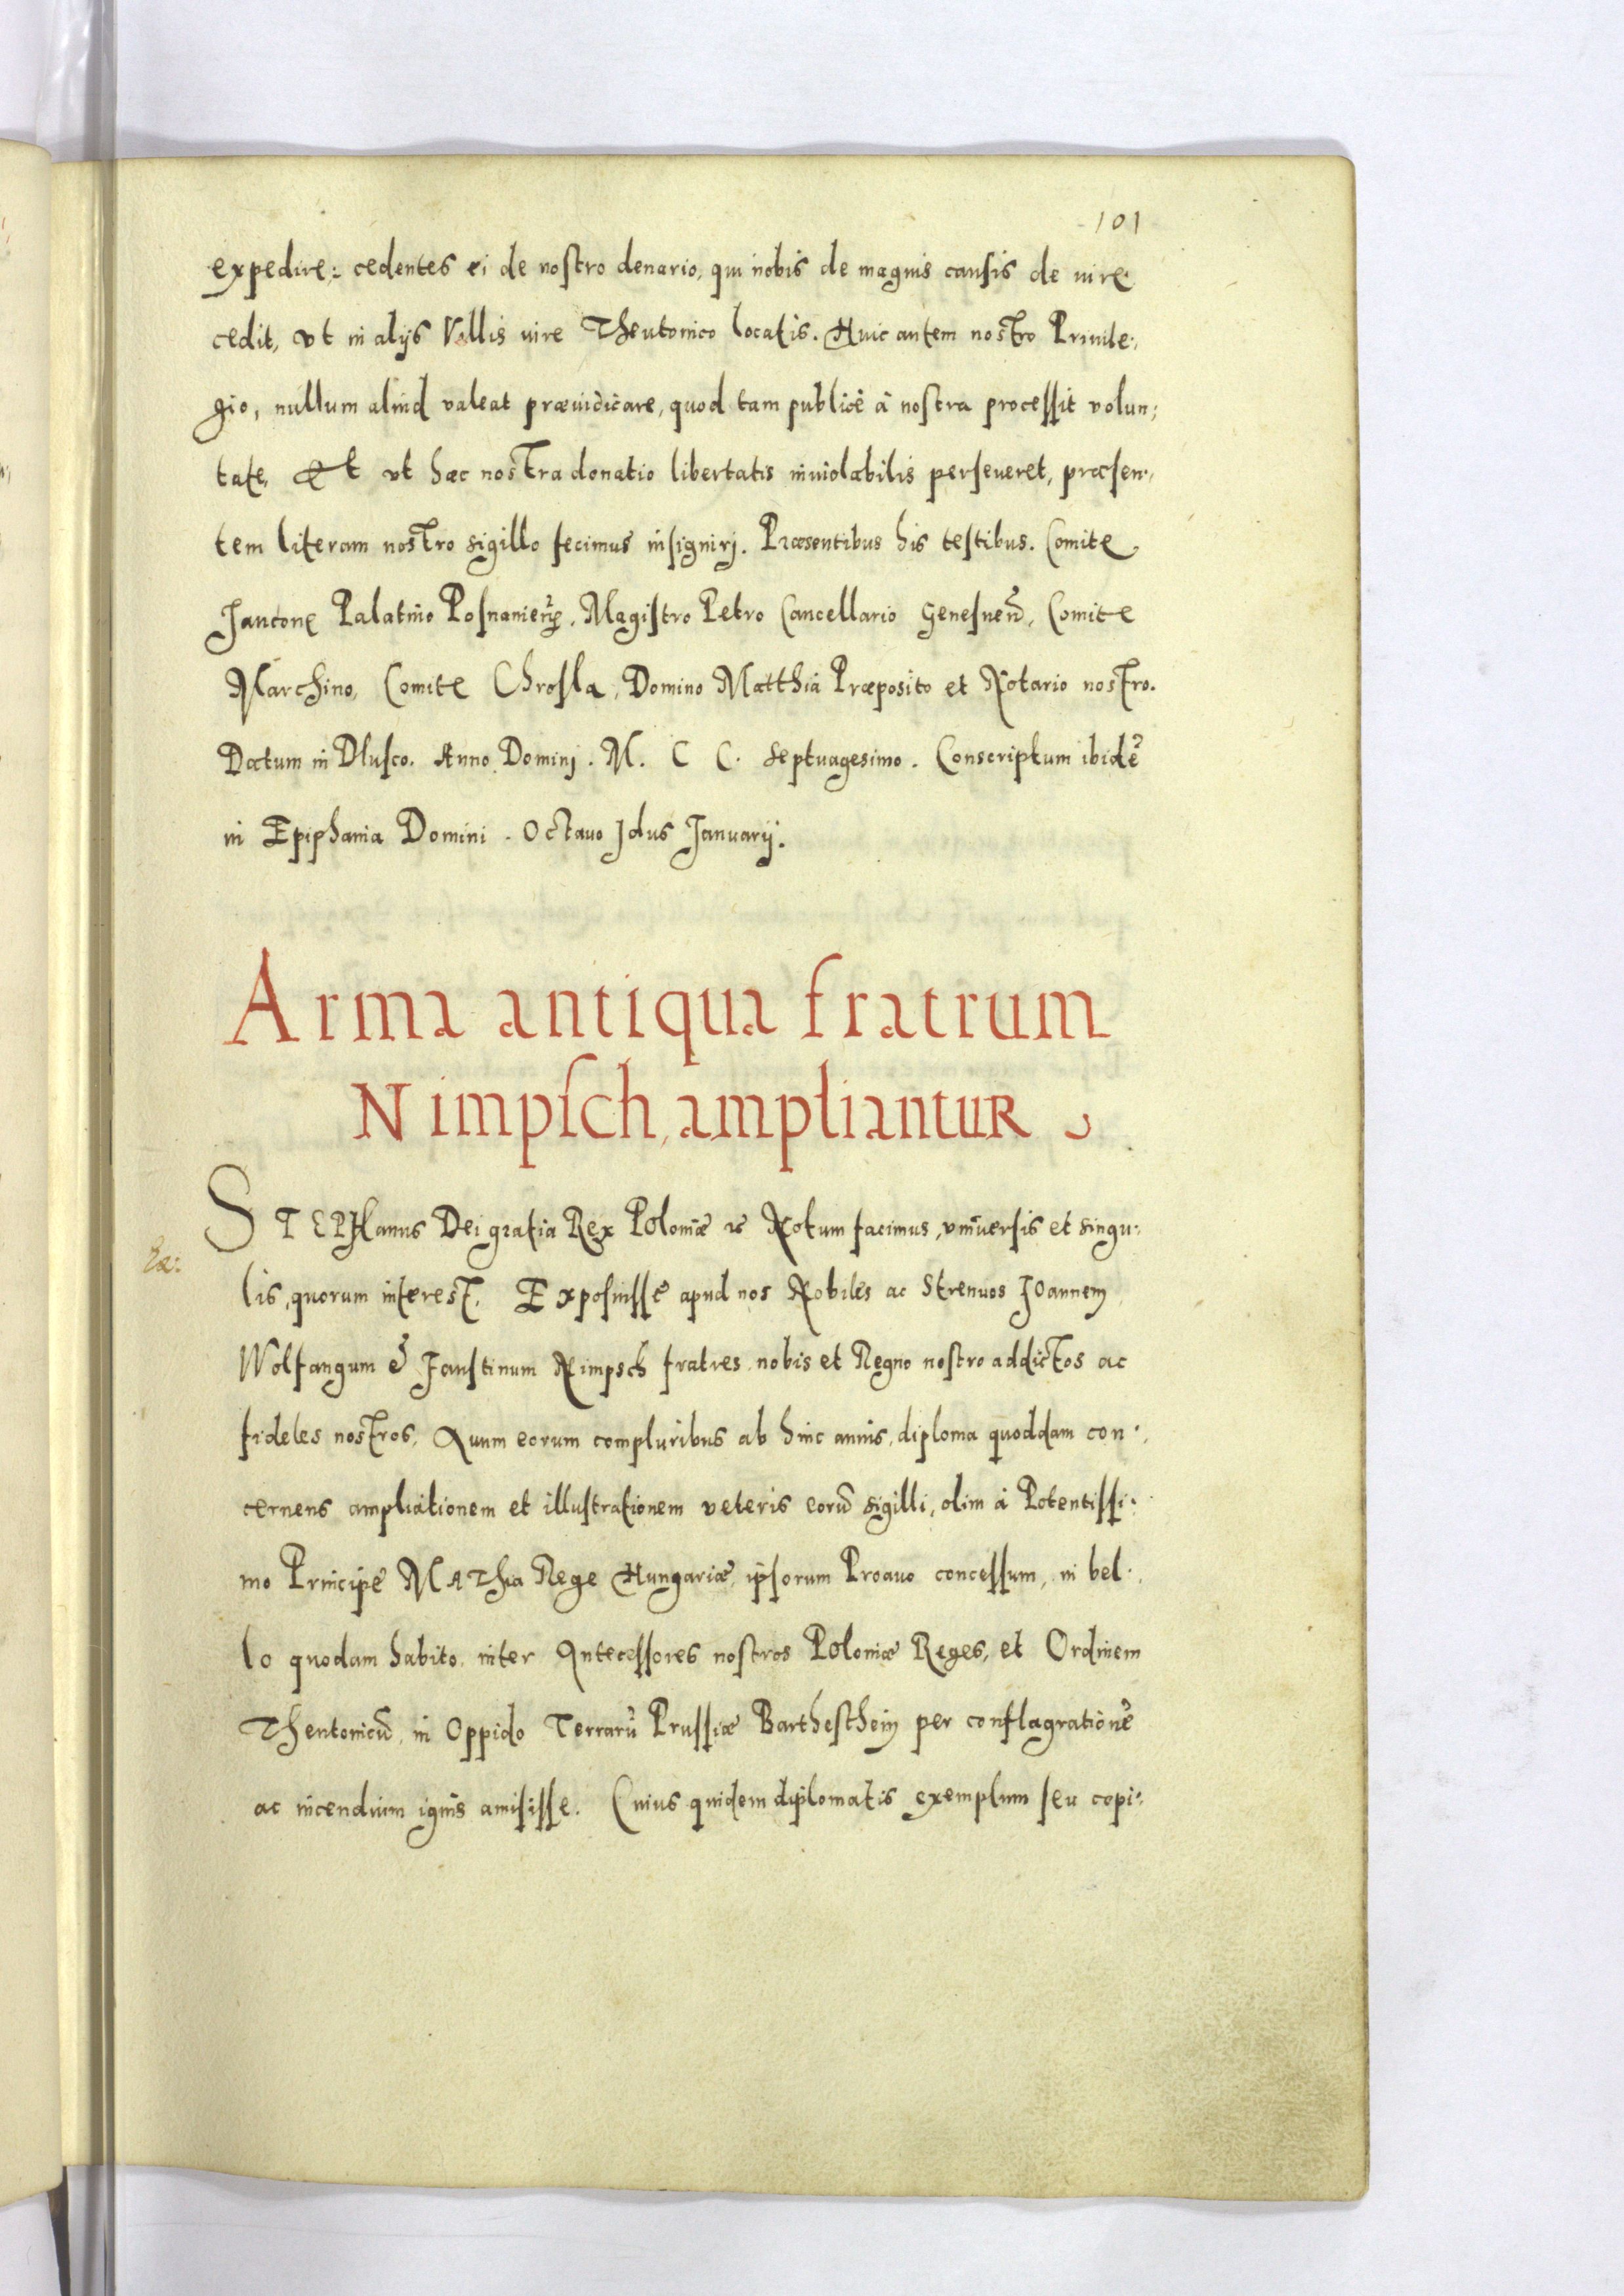 101
expedire; cedentes ei de nostro denario, qui nobis de magnis causis de iure
cedit, vt in alijs Villis iure Theutonico locatis. Huic autem nostro Priuile,
gio, nullum aliud valeat præiudicare, quod tam publicè à nostra processit volun;
tate, Et vt hæc nostra donatio libertatis inuiolabilis perseueret, præsen,
tem literam nostro sigillo fecimus insignirj. Præsentibus his testibus. Comite
Jancone Palatino Magistro Petro Cancellario Comite
Marchino, Comite Chrosla, Domino Matthia Præposito et Notario nostro.
Datum in Dlusco. Anno Dominj. M. C C. septuagesimo. Conscriptum ibidē
in Epiphania Domini. Octauo Jdus Januarij.
Arma antiqua fratrum
Nimpsch, ampliantur
STEPHanus Dei gratia Rex Poloniæ Notum facimus, vniuersis et singu:
lis, quorum interest, Exposuisse apud nos Nobiles ac Strenuos Joannem
Wolfangum & Faustinum Nimpsch fratres nobis et Regno nostro addictos ac
fideles nostros, Quum eorum compluribus ab hinc annis, diploma quoddam con:
cernens ampliationem et illustrationem veteris eorū sigilli, olim à Potentissi:
mo Principe MAThia Rege Hungariæ, ipsorum Proauo concessum, in bel:
lo quodam habito inter Antecessores nostros Poloniæ Reges, et Ordinem
Theutonicū, in Oppido Terrarū Prussiæ Barthesthein per conflagrationē
ac incendium ignis amisisse. Cuius quidem diplomatis exemplum seu copi: